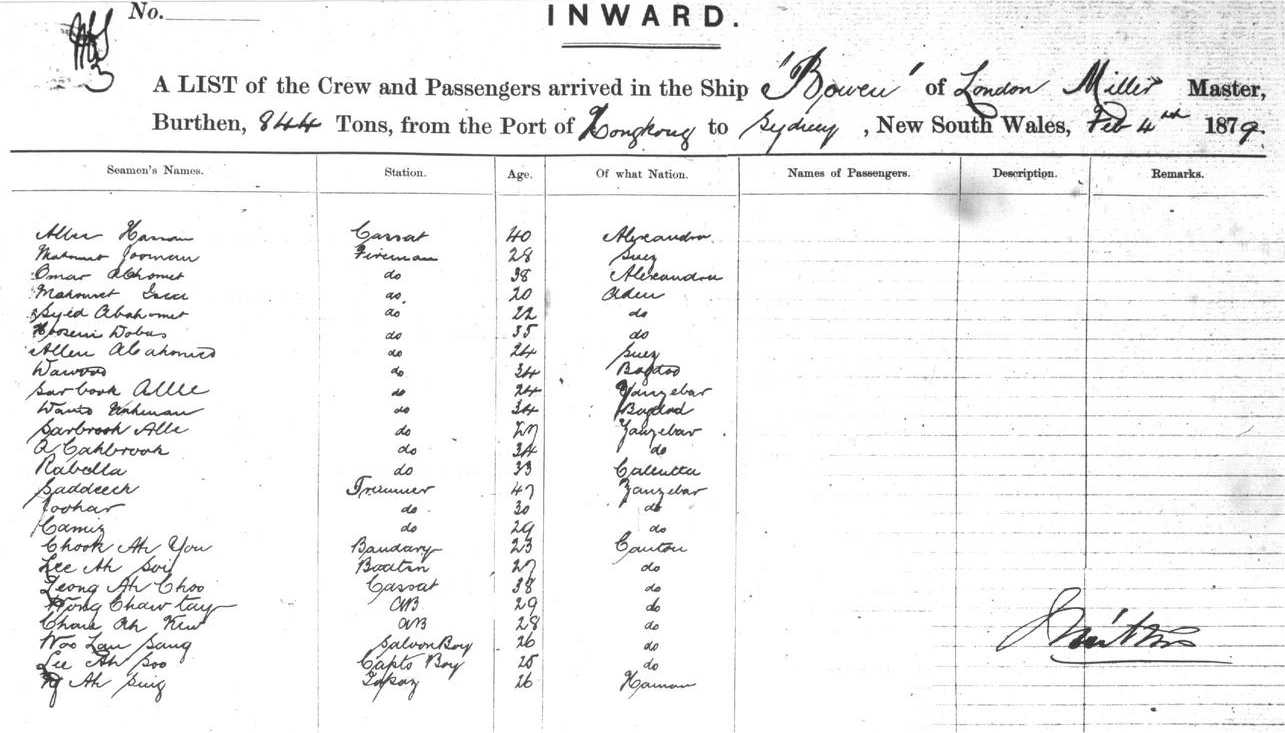 No.
INWARD.
A LIST of the Crew and Passengers arrived in the Ship 'Bowen' of London Master,
Burthen, 844 Tons, from the Port of Hongkong to Sydney, New South Wales, Feb 4th 1879.
Seamen's Names. Station. Age. Of what Nation. Names of Passengers. Description. Remarks.
Allee Hassan Cassat 40 Alexandra
Mahomet Jooman Fireman 28 Suez
Omar do 38 Alexandra
Mahomet Issa do. 20 Aden
Syed Abahomet do 22 do
Hoosein Dobas do 35 do
Allee do 24 Suez
do 34 Bagdad
Sarbook Allie do 24 Zanzebar
do 34 Bagdad
Sarbrook Alle do 27 Zanzebar
do 34 do
Rabella do 33 Calcutta
Saddeech Trimmer 47 Zanzebar
Joohar do 30 do
Camiz do 29 do
Chook Ah You Bandary 23 Canton
Lee Ah Soi 27 do
Leong Ah Choo Cassat 38 do
Wong Chaw tay AB 29 do
Ah Kew AB 28 do
Woo Lan Sang Saloon Boy 26 do
Lee Ah Soo Capts Boy 25 do
Ng Ah Sing Topaz 26